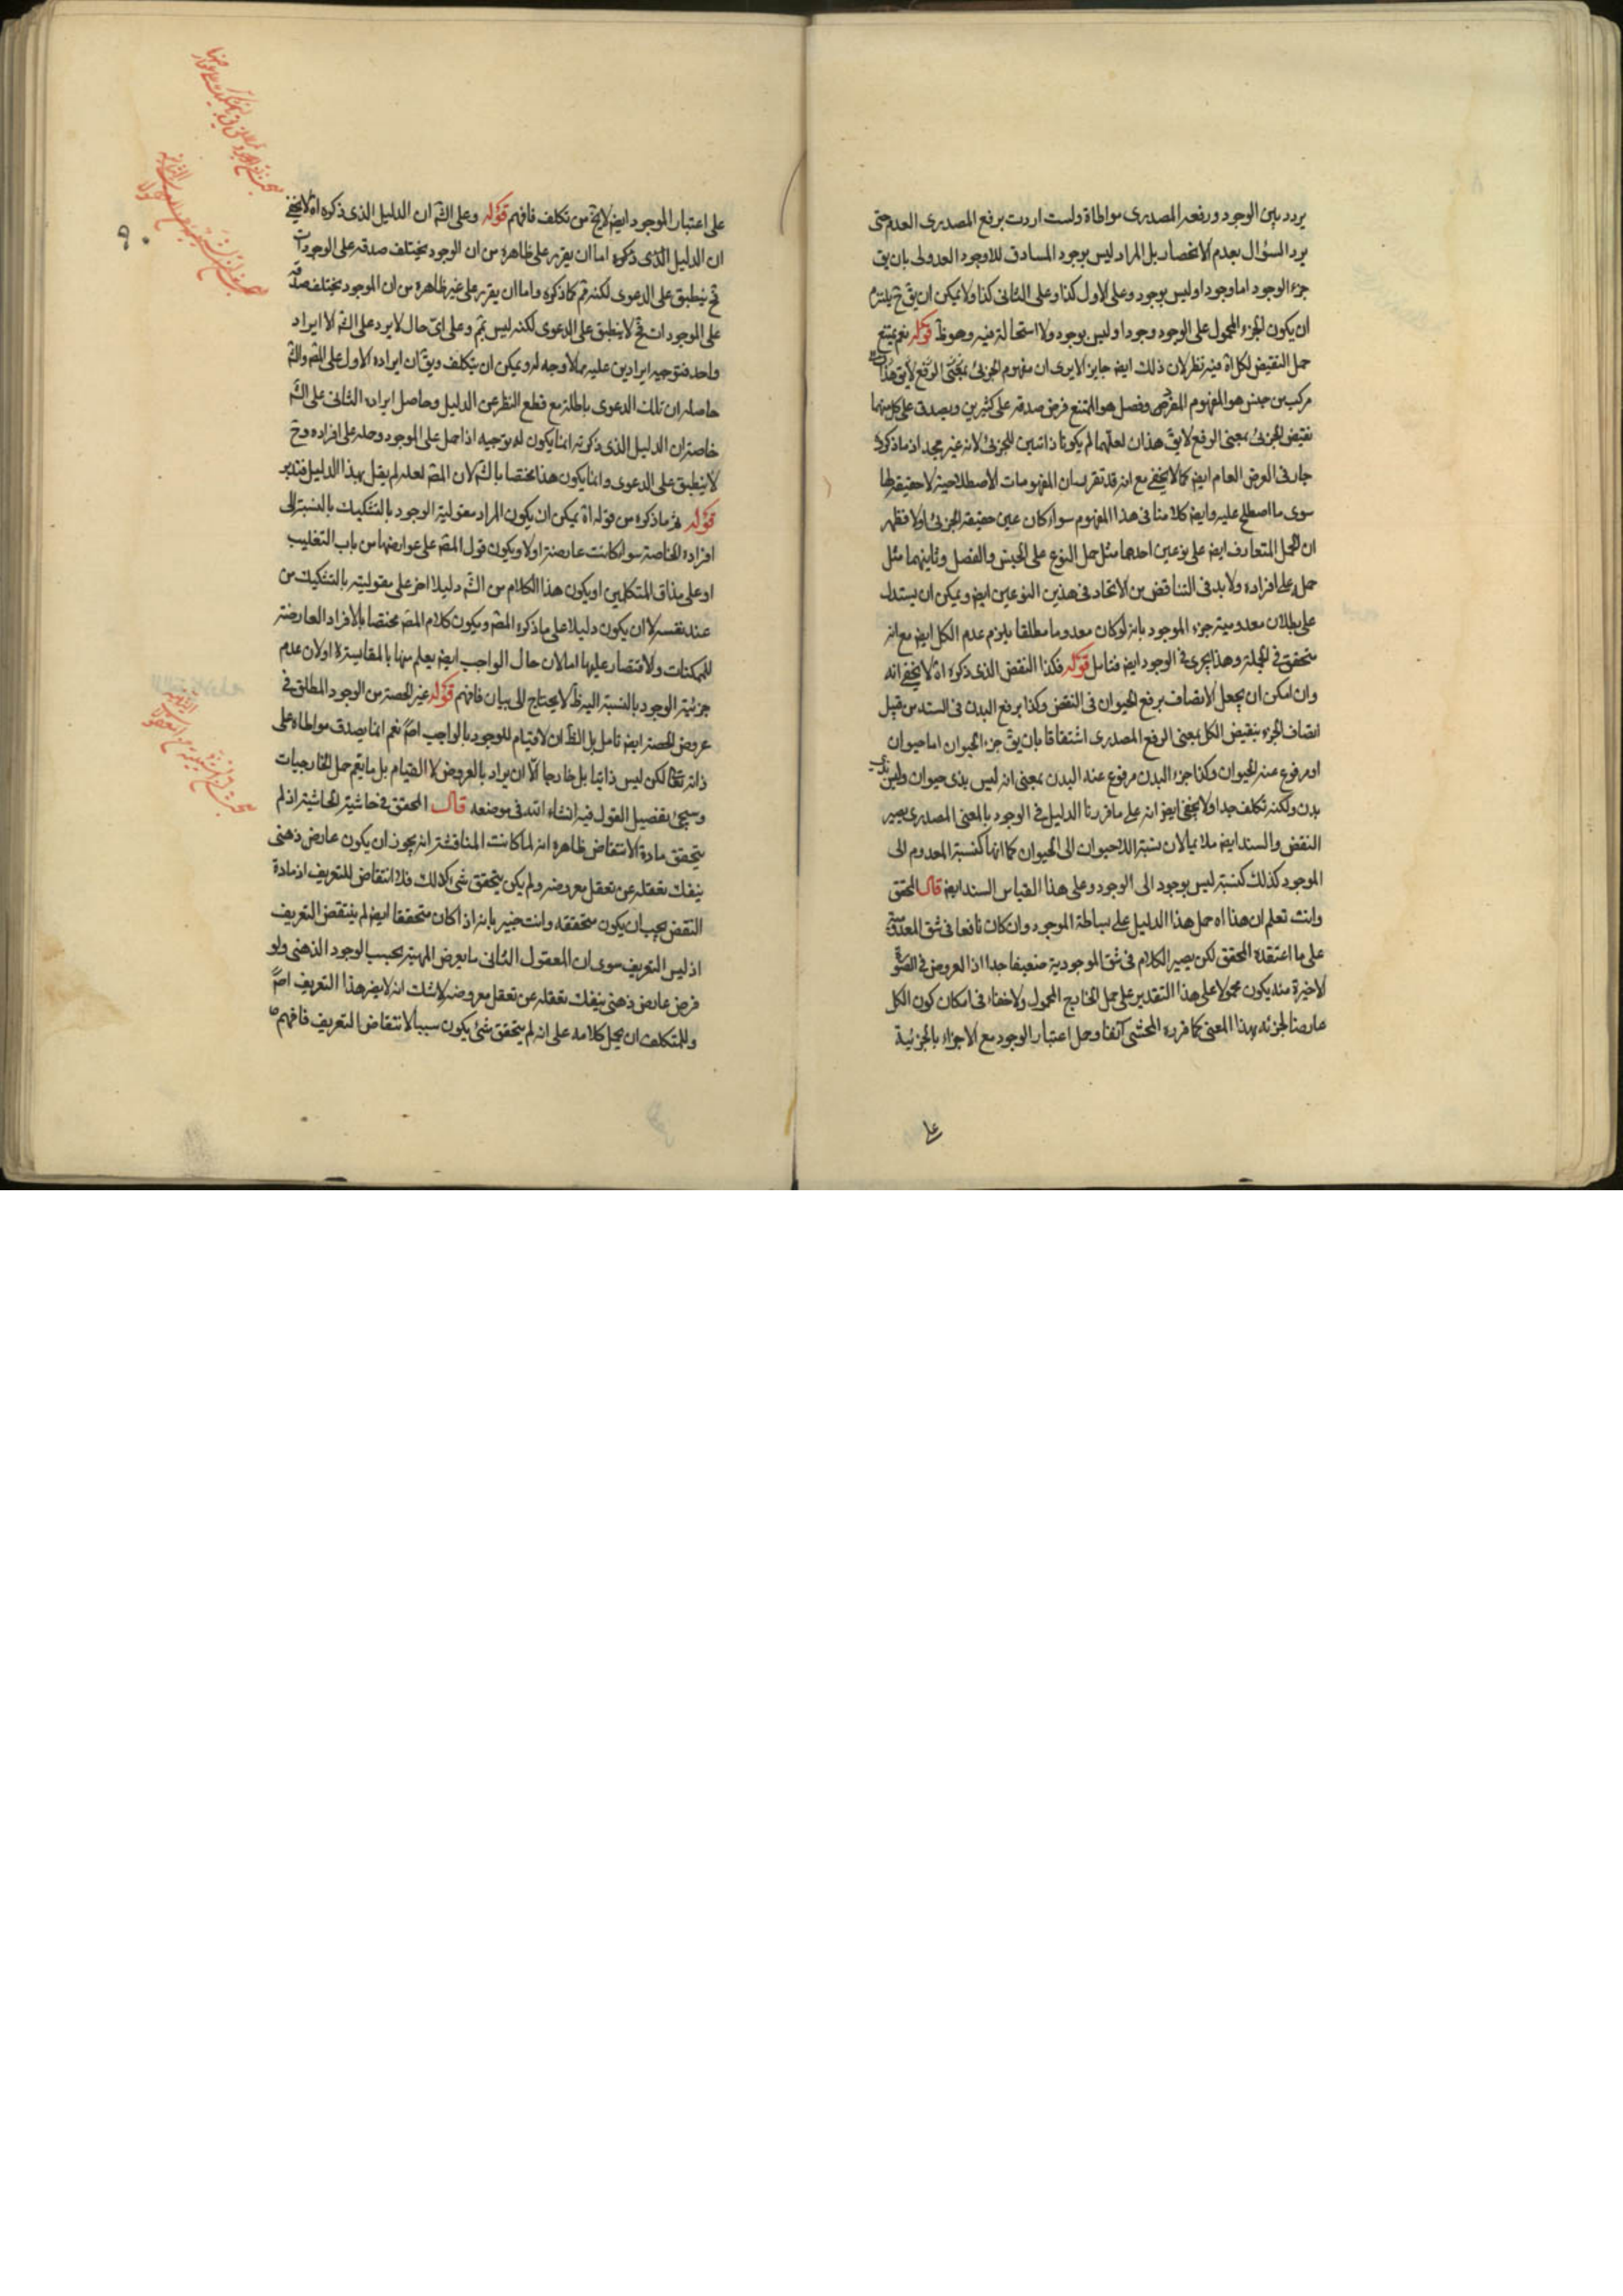 يردد بين الوجود ورفعه المصدرى مواطاة ولست اردت برفع المصدرى العدم حتى
يرد السؤال بعدم الانحصار بل المراد ليس بوجود المساوق للاوجود العدولى بان يق
جزء الوجود اما وجود او ليس بوجود وعلى الاول كذا وعلى الثانى كذا ولا يمكن ان يق ح يلتزم
ان يكون الجزء المحمول على الوجود وجودا وليس بوجود ولا استحالة فيه وهو ظ قوله نعم يمتنع
حمل النقيض لكل اه فيه نظر لان ذلك ايض جايز الا يرى ان مفهوم الجزئى بمعنى الرفع لا يق هذا
مركب من جنس هو المفهوم وفصل هو الممتنع فرض صدقه على كثيرين ويصدق على كل منهما
نقيض الجزئى بمعنى الرفع لا يق هذان لعلهما لم يكونا ذاتيين للجزئى لانه غير مجد اذ ما ذكره
جار فى العرض العام ايض كما لا يخفى مع انه قد تقرر ان المفهومات الاصطلاحية لا حقيقة لها
سوى ما اصطلح عليه وايض كلامنا فى هذا المفهوم سواء كان عين حقيقة الجزئى اولا فظهر
ان الحمل المتعارف ايض على نوعين احدهما مثل حمل النوع على الجنس والفصل وثانيهما مثل
حمل على افراده ولا بد فى التناقض من الاتحاد فى هذين النوعين ايض ويمكن ان يستدل
على بطلان معدومية جزء الموجود بانه لو كان معدوما مطلقا يلزم عدم الكل ايض مع انه
متحقق فى الجملة وهذا يجرى فى الوجود ايض فتامل قوله فكذا النقض الذى ذكره اه لا يخفى انه
وان امكن ان يجعل الاتصاف برفع الحيوان فى النقض وكذا برفع البدن فى السند من قبيل
اتصاف الجزء بنقيض الكل بمعنى الرفع المصدرى اشتقاقا بان يق جزء الحيوان اما حيوان
او مرفوع عنه الحيوان وكذا جزء البدن مرفوع عنه البدن بمعنى انه ليس بذى حيوان وليس
بدن ولكنه تكلف جدا ولا يخفى ايض انه على ما قررنا الدليل فى الوجود بالمعنى المصدرى يصير
النقض والسند ايض ملايما لان نسبة اللاحيوان الى الحيوان كما انها كنسبة المعدوم الى
الموجود كذلك كنسبة ليس بوجود الى الوجود وعلى هذا القياس السند ايض قال المحقق
وانت تعلم ان هذا اه حمل هذا الدليل على بساطة الموجود وان كان نافعا فى شق المعدومية
على ما اعتقده المحقق لكن يصير الكلام فى شق الموجودية ضعيفا جدا اذ العروض فى الصور
الاخيرة منه يكون محمولا على هذا التقدير على حمل الخارج المحمول ولا خفاء فى امكان كون الكل
عارضا لجزئه بهذا المعنى كما قرره المحشى آنفا وحمل اعتبار الوجود مع الاجزاء بالجزئية
على
على اعتبار الموجود ايض لا يخ من تكلف فافهم قوله وعلى الش ان الدليل الذى ذكره اه لا يخفى
ان الدليل الذى ذكره اما ان يقرر على ظاهره من ان الوجود يختلف صدقه على الوجودات
فح ينطبق على الدعوى لكنه كما ذكره واما ان يقرر على غير ظاهره من ان الموجود يختلف صدقه
على الموجودات فح لا ينطبق على الدعوى لكنه ليس بتم وعلى اى حال لا يرد على الش الا ايراد
واحد فتوجيه ايرادين عليه مما لا وجه له ويمكن ان يتكلف ويق ان ايراده الاول على المص والش
حاصله ان تلك الدعوى باطلة مع قطع النظر عن الدليل وحاصل ايراده الثانى على الش
خاصة ان الدليل الذى ذكرته انما يكون له توجيه اذا حمل على الموجود وحمله على افراده وح
لا ينطبق على الدعوى وانما يكون هذا مختصا بالش لان المص لعله لم يقل بهذا الدليل فتدبر
قوله ثم ما ذكره من قوله اه يمكن ان يكون المراد مقولية الوجود بالتشكيك بالنسبة الى
افراده الخاصة سواء كانت عارضة اولا ويكون قول المص على عوارضها من باب التغليب
او على مذاق المتكلمين او يكون هذا الكلام من الش دليلا اخر على مقوليته بالتشكيك من
عند نفسه لا ان يكون دليلا على ما ذكره المص ويكون كلام المص مختصا بالافراد العارضة
للممكنات والاقتصار عليها اما لان حال الواجب ايض يعلم منها بالمقايسة او لان عدم
جزئية الوجود بالنسبة اليه ظ لا يحتاج الى بيان فافهم قوله غير الحصة من الوجود المطلق فى
عروض الحصة ايض تامل بل الظ ان لا قيام للوجود بالواجب اص نعم انما يصدق مواطاة على
ذاته تعا لكن ليس ذاتيا بل خارجا الا ان يراد بالعروض لا القيام بل ما يعم حمل الخارجيات
وسيجئ تفصيل القول فيه انشاء الله فى موضعه قال المحقق فى حاشية الحاشية اذ لم
يتحقق مادة الانتقاض ظاهره انه لما كانت المناقشة انه يجوز ان يكون عارض ذهنى
ينفك تعقله عن تعقل معروضه ولم يكن يتحقق شئ كذلك فلا انتقاض للتعريف اذ مادة
النقض يجب ان يكون متحققه وانت خبير بانه اذا كان متحققا ايض لم ينتقض التعريف
اذ ليس التعريف سوى ان المعقول الثانى ما يعرض المهية بحسب الوجود الذهنى ولو
فرض عارض ذهنى ينفك تعقله عن تعقل معروضه لا شك انه لا يضر هذا التعريف اص
وللمتكلف ان يحمل كلامه على انه لم يتحقق شئ يكون سببا لانتقاض التعريف فافهم